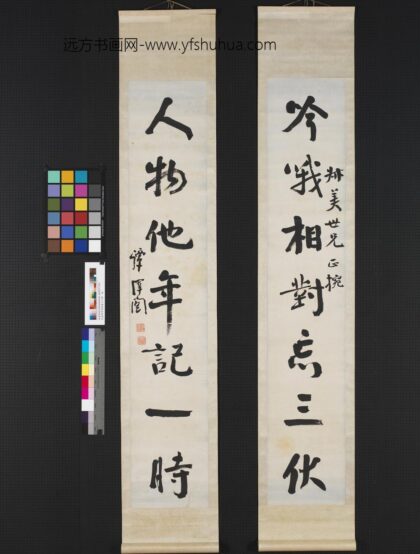 远方书画网-www.yfshuhua.com
吟哦相對忘三伏
美世兄正腕
人物他年記一時
譚澤闓